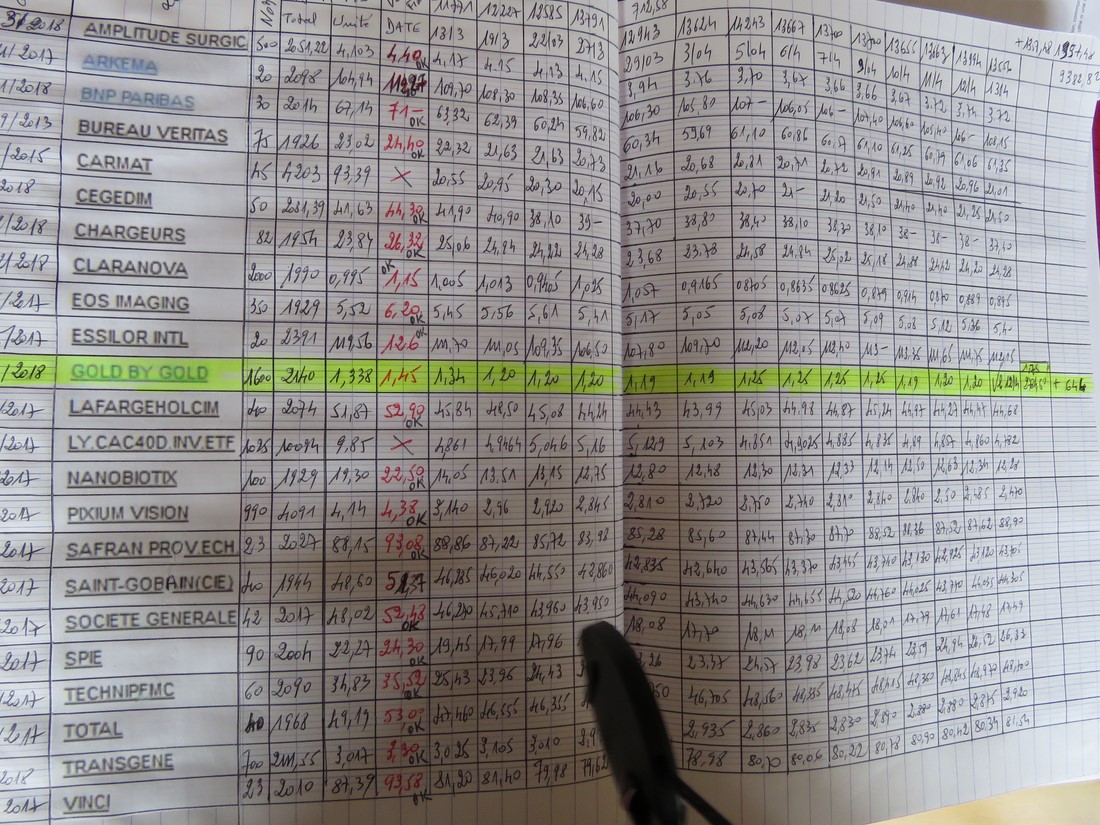 Total Unité DATE 11771 12227 12585 13791 712,58 13624 14243 13667 13700 13700 13655 13663 13994 13556 +157,48 1957,48
1313 1913 2203 2713 2903 3/04 5/04 6/4 7/4 9/04 10/4 11/4 12/4 13/4 9382,82
2018 AMPLITUDE SURGIC 500 2051,22 4,103 4,40 OK 4,17 4.15 4,13 4.15 3,94 3,76 3,70 3,67 3,66 3,66 3,67 3,72 3,74 3,72
/2017 ARKEMA 20 2098 104,94 109,70 108,30 108,35 106,60 106,30 105,80 107- 106,05 106- 106,60 105,40 106- 108,15
/2018 BNP PARIBAS 30 2014 67,14 71- OK 63,32 62,39 60,24 59,82 60,34 59,69 61,10 60,86 60,57 61,10 61,25 60,79 61,06 61,35
9/2013 BUREAU VERITAS 75 1926 23,02 24,40 OK 22,32 21,63 21,63 20,73 21,16 20,68 20,81 20,71 20,72 20,91 20,89 20,92 20,96 21,01
/2015 CARMAT 45 4203 93,39 X 20,55 20,95 20,30 20,15 20,00 20,55 20,70 21- 21,20 21,50 21,40 21,40 21,25 21,50
2018 CEGEDIM 50 2081,39 41,63 44,30 OK 41,90 40,90 38,10 39- 37,70 38,80 38,40 38,10 38,30 38,10 38- 38- 38- 37,40
/2018 CHARGEURS 82 1954 23,84 26,32 OK 25,06 24,94 24,22 24,28 23,68 23,78 24,58 24,84 25,02 25,18 24,88 24,42 24,20 24,28
/2018 CLARANOVA 2000 1990 0,995 OK 1,15 1,005 1,013 0,9405 1,025 1,057 0,9165 0,8705 0,8635 0,8625 0,879 0,914 0,870 0,889 0,895
/2017 EOS IMAGING 350 1929 5,52 6,20 OK 5,45 5,56 5,61 5,41 5,17 5,05 5,08 5,07 5,07 5,09 5,08 5,12 5,36 5,40
/2017 ESSILOR INTL 20 2391 119,56 126 OK 111,70 111,05 109,35 106,50 107,80 109,70 112,20 112,05 112,40 113- 112,35 111,65 111,75 112,05
/2018 GOLD BY GOLD 1600 2140 1,338 1,45 1,34 1,20 1,20 1,20 1,19 1,19 1,25 1,25 1,25 1,25 1,19 1,20 1,20 + 64
/2017 LAFARGEHOLCIM 40 2074 51,87 52,90 OK 45,84 48,50 45,08 44,24 44,43 43,99 45,03 44,98 44,87 45,24 44,97 44,27 44,47 44,68
/2017 LY.CAC40D.INV.ETF 1025 10094 9,85 X 4,861 4,9464 5,046 5,16 5,129 5,103 4,851 4,9025 4,885 4,835 4,89 4,857 4,860 4,782
2017 NANOBIOTIX 100 1929 19,30 22,50 OK 14,05 13,51 13,15 12,75 12,80 12,48 12,30 12,31 12,33 12,14 12,50 12,63 12,34 12,28
2017 PIXIUM VISION 990 4091 4,14 4,38 OK 3,140 2,96 2,920 2,845 2,810 2,720 2,750 2,740 2,810 2,840 2,840 2,50 2,485 2,470
2017 SAFRAN PROV.ECH. 23 2027 88,15 93,08 OK 88,86 87,22 85,72 83,98 85,28 85,60 87,44 87,30 87,70 88,52 88,36 87,52 87,62 88,90
2017 SAINT-GOBAIN(CIE) 40 1944 48,60 51,37 46,285 46,020 44,550 42,860 42,835 42,640 43,565 43,370 43,445 43,740 43,130 42,925 43,120 43,705
2017 SOCIETE GENERALE 42 2017 48,02 52,48 OK 46,270 45,710 43,960 43,950 44,090 43,740 44,630 44,655 44,520 44,760 44,025 43,710 44,035 44,305
2017 SPIE 90 2004 22,27 24,30 OK 19,45 17,99 17,96 18,08 17,70 18,11 18,11 18,08 18,01 17,79 17,61 17,48 17,49
2017 TECHNIPFMC 60 2090 34,83 35,52 OK 25,43 23,96 24,43 23,37 24,57 23,98 23,62 23,74 23,59 24,94 26,52 26,83
/2017 TOTAL 40 1968 49,19 53,00 OK 47,460 46,555 46,355 46,705 48,560 48,355 48,475 48,415 48,350 48,845 48,970 48,700
2018 TRANSGENE 700 2111,55 3,017 3,30 OK 3,025 3,105 3,010 2,935 2,860 2,835 2,830 2,890 2,880 2,880 2,875 2,920
2017 VINCI 23 2010 87,39 93,58 OK 81,20 81,40 79,98 79,62 78,98 80,10 80,06 80,22 80,78 80,90 80,42 80,34 81,54